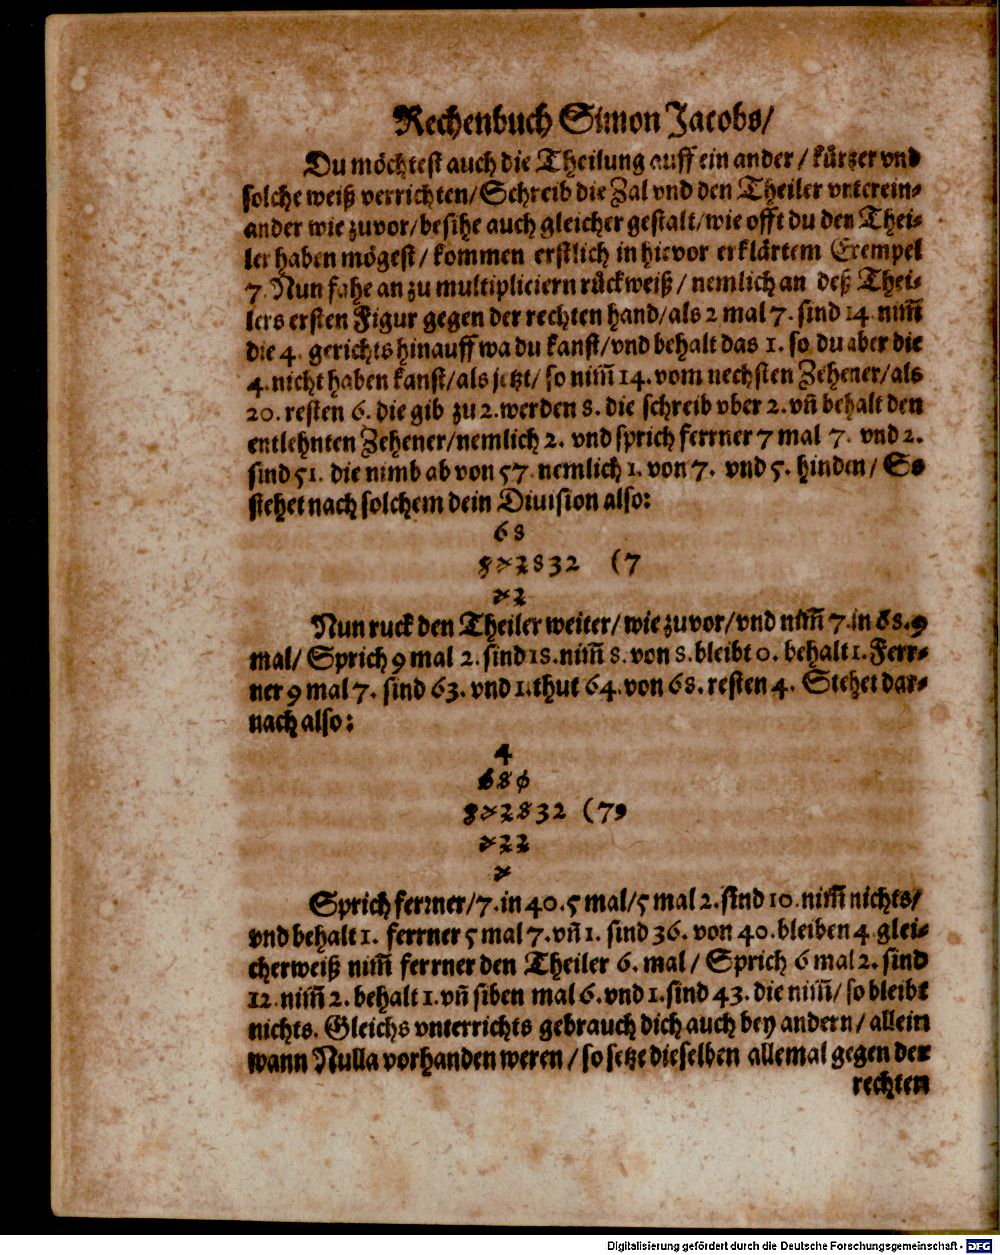 Rechenbuch Simon Jacobs/
Du möchtest auch die Theilung auff ein ander / kürzer vnd
solche weiß verrichten/Schreib die Zal vnd den Theiler vnterein-
ander wie zuvor/besihe auch gleicher gestalt/wie offt du den Thei-
ler haben mögest / kommen erstlich in hievor erklärtem Exempel
7. Nun fahe an zu multipliciern rückweiß / nemlich an deß Thei-
lers ersten Figur gegen der rechten hand/als 2 mal 7. sind 14. nim̃
die 4. gerichts hinauff wa du kanst/vnd behalt das 1. so du aber die
4. nicht haben kanst/als jetzt/ so nim̃ 14. vom nechsten Zehener/als
20. resten 6. die gib zu 2. werden 8. die schreib vber 2. vñ behalt den
entlehnten Zehener/nemlich 2. vnd sprich ferrner 7 mal 7. vnd 2.
sind 51. die nimb ab von 57 nemlich 1. von 7. vnd 5. hinden / So
stehet nach solchem dein Diuision also:
68
572832 (7
72
Nun ruck den Theiler weiter/wie zuvor/vnd nim̃ 7. in 68. 9
mal/ Sprich 9 mal 2. sind 18. nim̃ 8. von 8. bleibt 0. behalt 1. Ferr-
ner 9 mal 7. sind 63. vnd 1. thut 64. von 68. resten 4. Stehet dar-
nach also:
4
680
572832 (79
722
7
Sprich ferrner/7. in 40. 5 mal/5 mal 2. sind 10. nim̃ nichts/
vnd behalt 1. ferrner 5 mal 7. vñ 1. sind 36. von 40. bleiben 4. glei-
cherweiß nim̃ ferrner den Theiler 6. mal / Sprich 6 mal 2. sind
12. nim̃ 2. behalt 1. vñ siben mal 6. vnd 1. sind 43. die nim̃/ so bleibt
nichts. Gleichs vnterrichts gebrauch dich auch bey andern / allein
wann Nulla vorhanden weren / so setze dieselben allemal gegen der
rechten
Digitalisierung gefördert durch die Deutsche Forschungsgemeinschaft - DFG